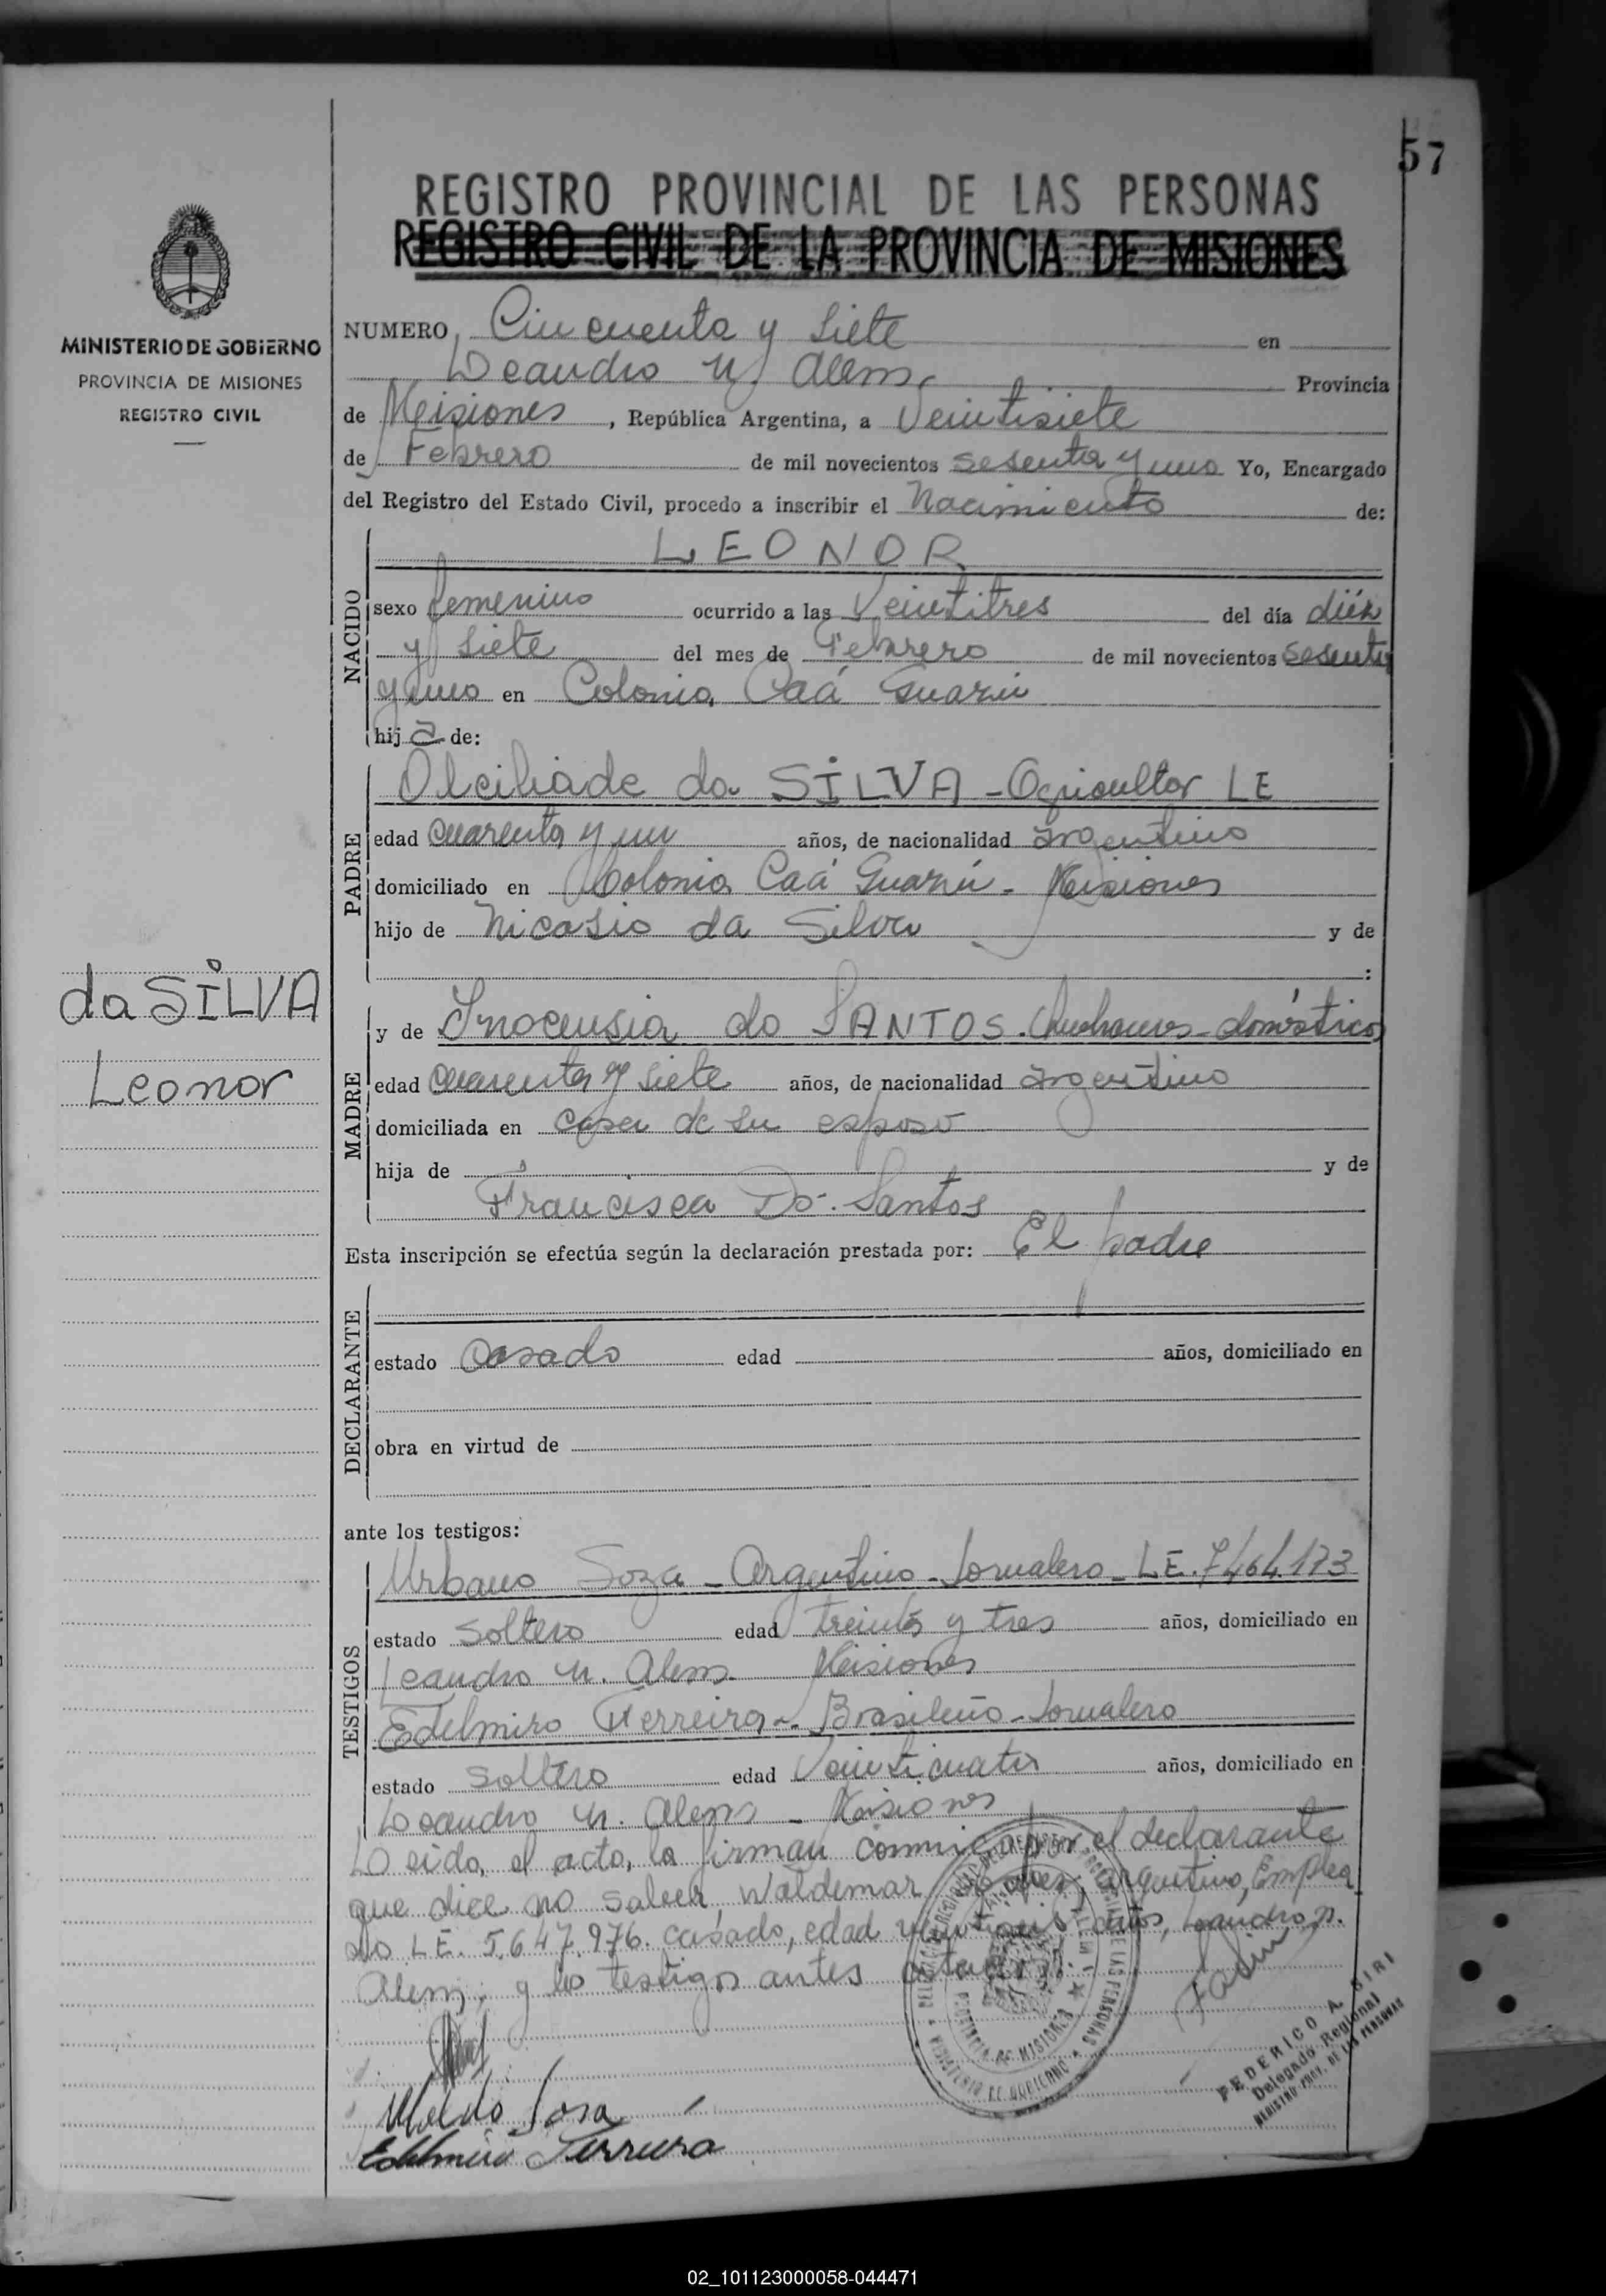 57
REGISTRO PROVINCIAL DE LAS PERSONAS
REGISTRO CIVIL DE LA PROVINCIA DE MISIONES
MINISTERIO DE GOBIERNO
PROVINCIA DE MISIONES
REGISTRO CIVIL
da SILVA
Leonor
NUMERO Cincuenta y Siete en
Leandro N. Alem. Provincia
de Misiones, República Argentina, a Veintisiete
de Febrero de mil novecientos sesenta y uno Yo, Encargado
del Registro del Estado Civil, procedo a inscribir el Nacimiento de:
NACIDO
LEONOR
sexo femenino ocurrido a las Veintitres del día diéz
y siete del mes de Febrero de mil novecientos sesenta
y uno en Colonia Caá Guazú
hija de:
PADRE
Alcibiade da SILVA - Agricultor LE
edad cuarenta y un años, de nacionalidad argentino
domiciliado en Colonia Caá Guazú - Misiones
hijo de Nicasio da Silva y de
:
MADRE
y de Inocensia do SANTOS. Quehaceres doméstico
edad cuarenta y siete años, de nacionalidad argentino
domiciliada en casa de su esposo
hija de y de
Francisca Do. Santos
Esta inscripción se efectúa según la declaración prestada por: El padre
DECLARANTE
estado Casado edad años, domiciliado en
obra en virtud de
ante los testigos:
TESTIGOS
Urbano Soza - Argentino - Jornalero - LE. 7.464.173
estado soltero edad treinta y tres años, domiciliado en
Leandro N. Alem. Misiones
Edelmiro Ferreira - Brasileño - Jornalero
estado soltero edad Veinticuatro años, domiciliado en
Leandro N. Alem - Misiones
Leida, el acta, la firman conmigo por el declarante
que dice no saber, Waldemar argentino, Emplea
do LE. 5.647.976. casado, edad años, Leandro N.
Alem; y los testigos antes
Sosa
Edelmiro Ferreira
PROVINCIA DE MISIONES
MINISTERIO DE GOBIERNO
FEDERICO A. SIRI
Delegado Regional
REGISTRO PROV. DE LAS PERSONAS
02_101123000058-044471